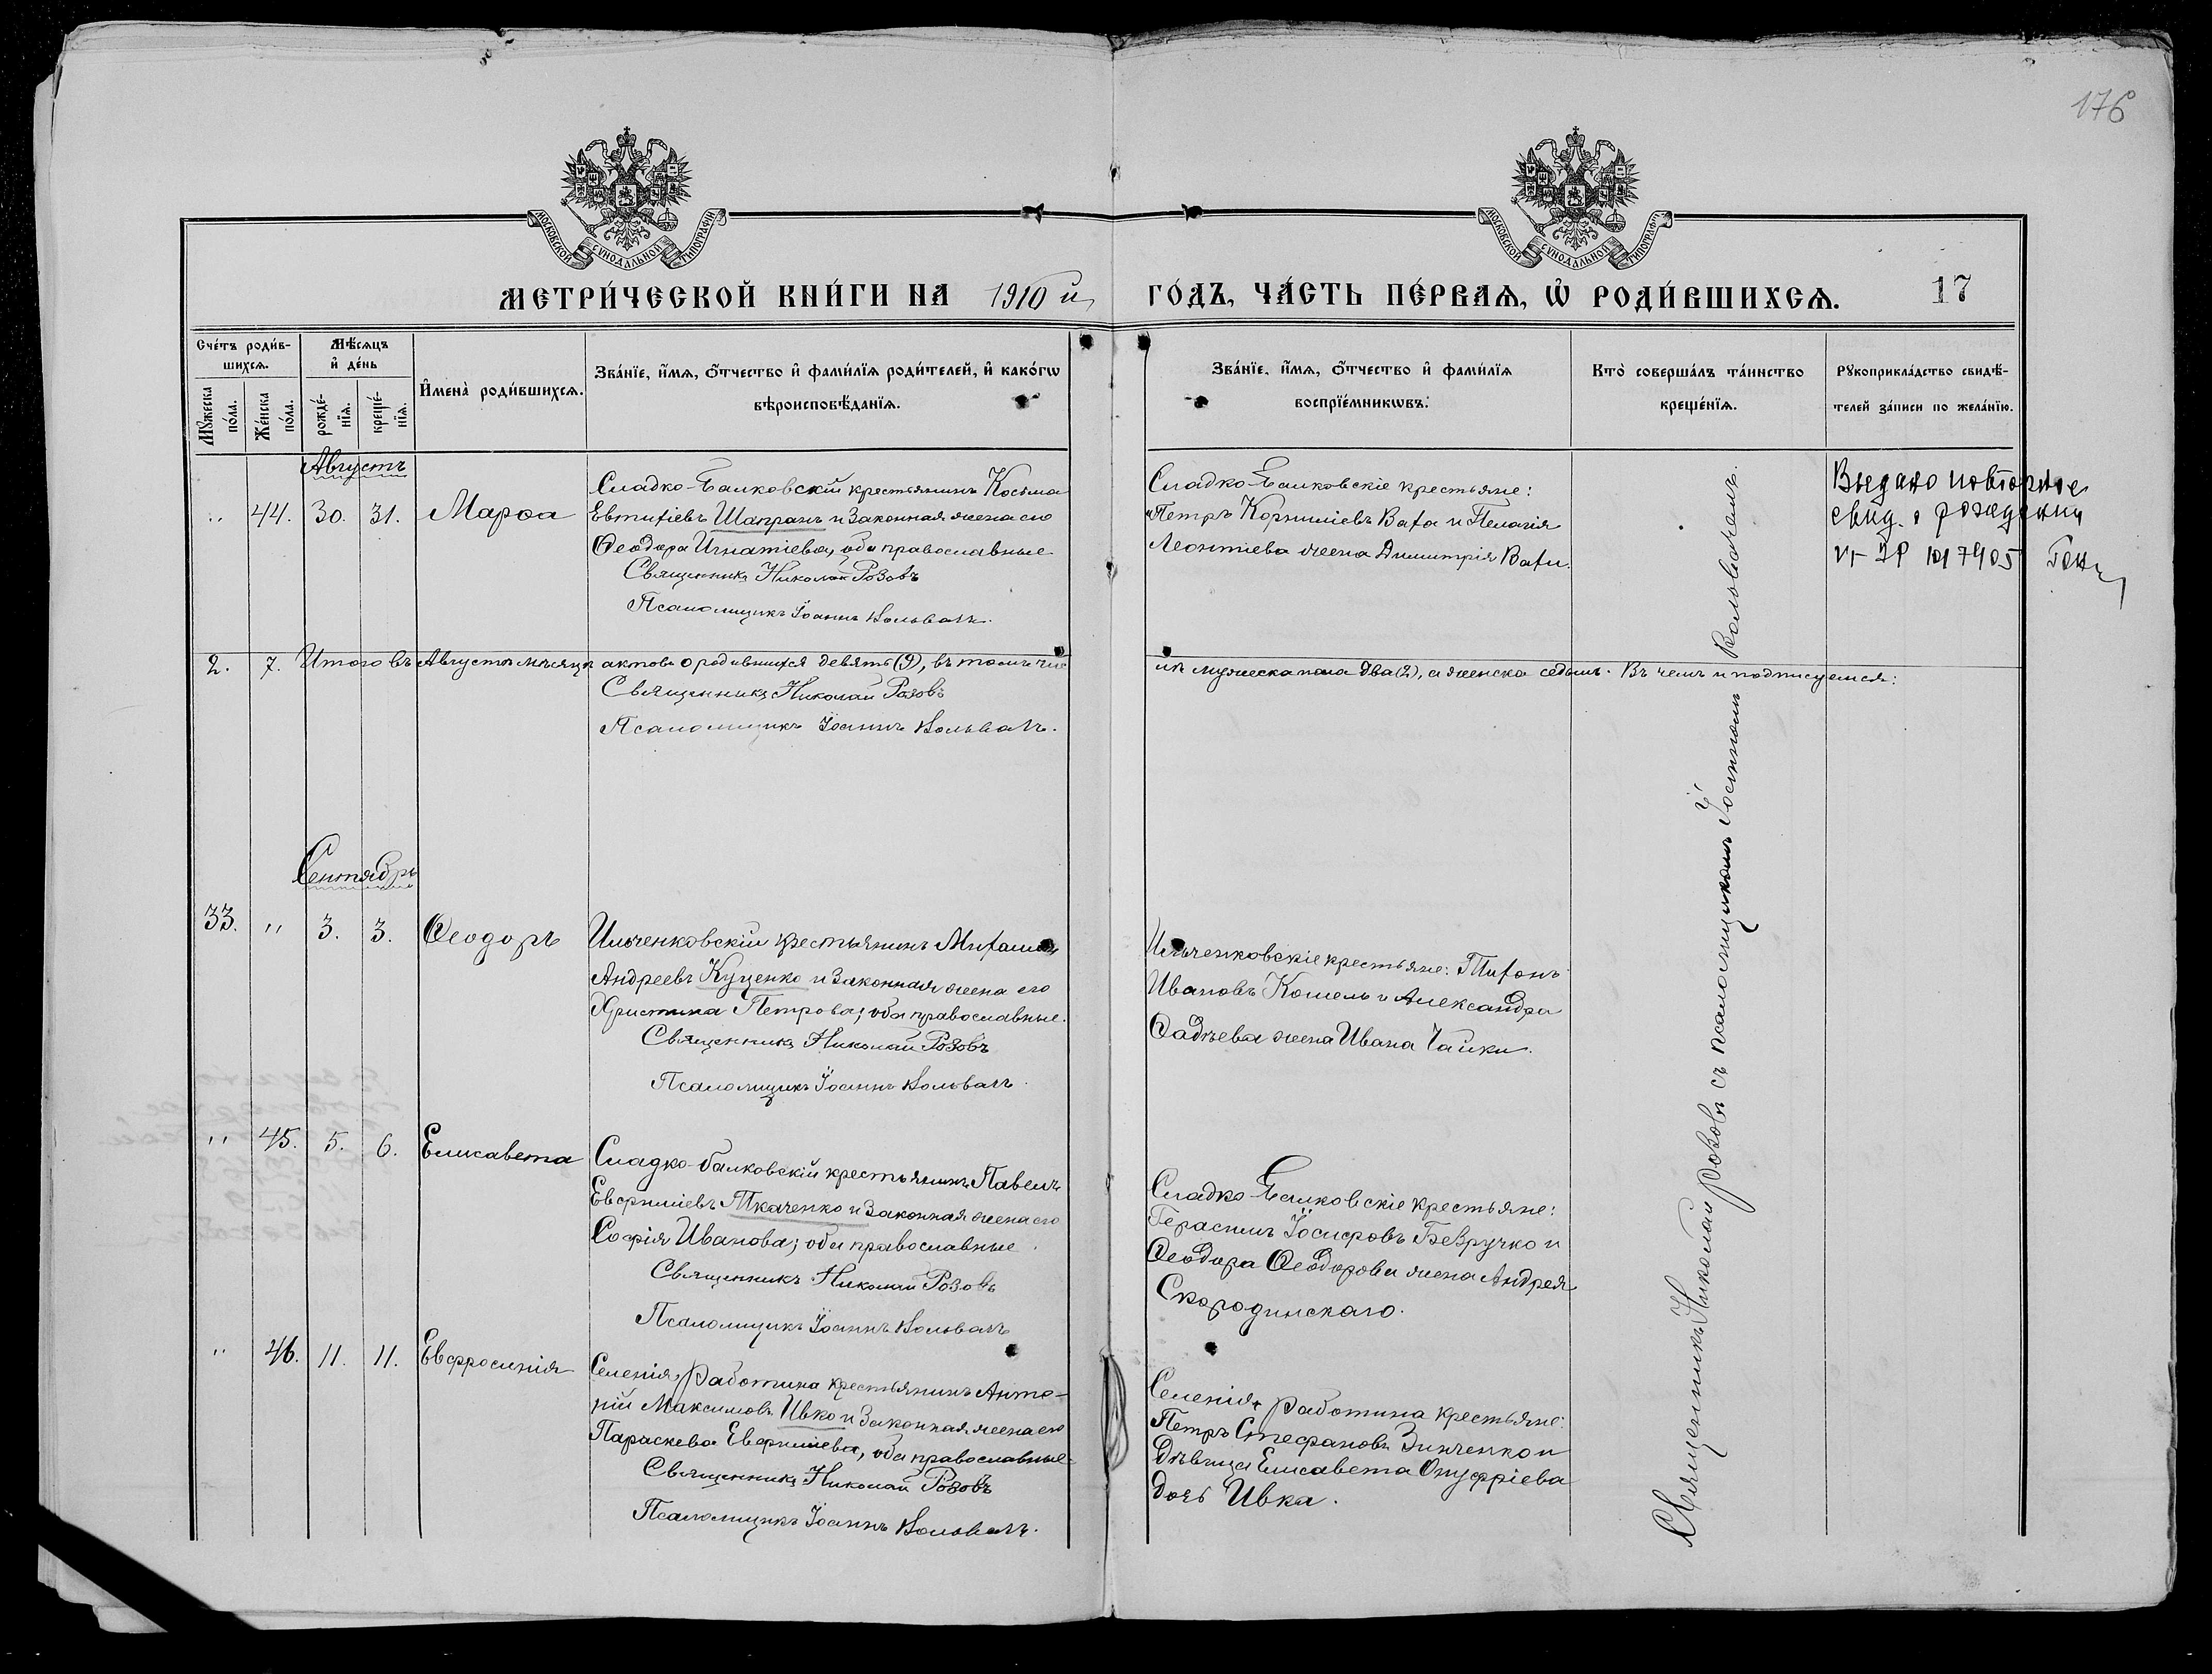 176
МОСКОВСКОЙ СУНОДАЛЬНОЙ ТИПОГРАФІИ
МОСКОВСКОЙ СУНОДАЛЬНОЙ ТИПОГРАФІИ
МЕТРИ́ЧЕСКОЙ КНИ́ГИ НА 1910 й
ГО́ДЪ, ЧА́СТЬ ПЕ́РВАѦ, Ѡ҆ РОДИ́ВШИХСѦ. 17
Счéтъ роди́в-
шихсѧ.
Мꙋ́жеска по́ла.
Же́нска по́ла.
Мѣ́сѧцъ
и҆ де́нь
рождé-
нїѧ.
креще́-
нїѧ.
И҆мена̀ роди́вшихсѧ.
Зва́нїе, и҆́мѧ, ѻ҆́тчество и҆ фами́лїѧ роди́телей, и҆ како́гѡ
вѣроисповѣ́данїѧ.
Зва́нїе, и҆́мѧ, ѻ҆́тчество и҆ фами́лїѧ
воспрїе́мникѡвъ.
Кто̀ соверша́лъ та́инство
креще́нїѧ.
Рꙋкоприкла́дство свидѣ́-
телей за́писи по жела́нїю.
Августъ
" 44. 30. 31. Марѳа
Сладко-Балковскій крестьянинъ Косьма
Евтихіевъ Шапранъ и законная жена его
Ѳеодора Игнатіева, оба православные
Священникъ Николай Розовъ
Псаломщикъ Іоаннъ Вольвачъ.
Сладко-Балковскіе крестьяне:
Петръ Корниліевъ Ваха и Пелагія
Леонтіева жена Димитрія Вахи.
Выдано повторное
свид. о рождении
2. 7. Итого въ Августѣ мѣсяцѣ актовъ о родившихся девять (9), въ томъ чис
лѣ мужеска пола два (2), а женска седмь. Въ чемъ и подписуемся:
Священникъ Николай Розовъ
Псаломщикъ Іоаннъ Вольвачъ.
Сентябрь
33. " 3. 3. Ѳеодоръ
Ильченковскій крестьянинъ Михаилъ
Андреевъ Куценко и законная жена его
Христина Петрова; оба православные.
Священникъ Николай Розовъ
Псаломщикъ Іоаннъ Вольвачъ.
Ильченковскіе крестьяне: Тихонъ
Ивановъ Кошель и Александра
Ѳадѣева жена Ивана Чайки.
" 45. 5. 6. Елисавета
Сладко-балковскій крестьянинъ Павелъ
Евфиміевъ Ткаченко и законная жена его
Софія Иванова; оба православные.
Священникъ Николай Розовъ
Псаломщикъ Іоаннъ Вольвачъ
Сладко-Балковскіе крестьяне:
Герасимъ Іосифовъ Безручко и
Ѳеодора Ѳеодорова жена Андрея
Скородинскаго.
" 46. 11. 11. Евфросинія
Селенія Работина крестьянинъ Анто-
ній Максимовъ Ивко и законная жена его
Параскева Евфиміева, оба православные
Священникъ Николай Розовъ
Псаломщикъ Іоаннъ Вольвачъ.
Селенія Работина крестьяне:
Петръ Стефановъ Зинченко и
дѣвица Елисавета Онуфріева
дочь Ивка.
Священникъ Николай Розовъ съ псаломщикомъ Іоанномъ Вольвачемъ.